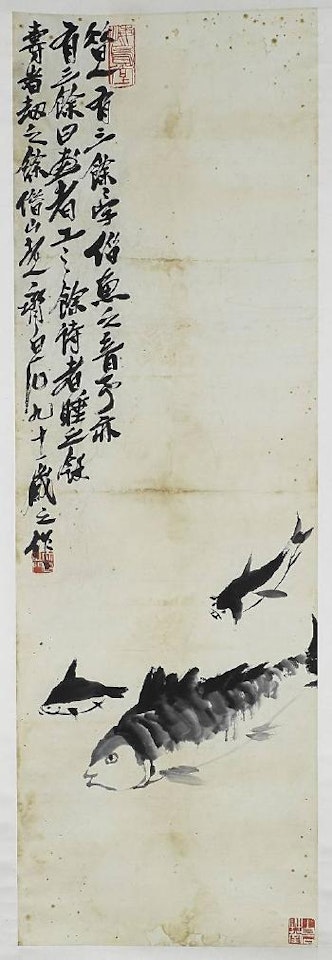 人有三餘〻字借魚之音予亦
有三餘曰畫者工之餘詩者睡之餘
壽者劫之餘借山老人齊白石九十一歲之作